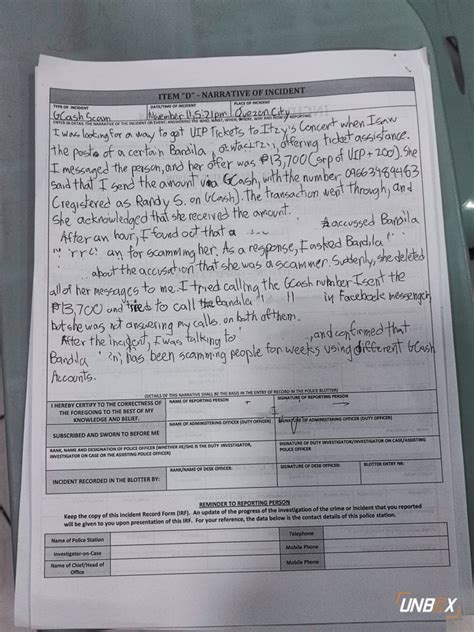 ITEM "D" - NARRATIVE OF INCIDENT
TYPE OF INCIDENT
GCash Scam
DATE/TIME OF INCIDENT
November 11, 5:21pm
PLACE OF INCIDENT
Quezon City
I was looking for a way to get VIP Tickets to Itzy's Concert when I saw
the posts of a certain Bandila, offering ticket assistance.
I messaged the person, and her offer was ₱13,700 (srp of VIP + 200). She
said that I send the amount via GCash, with the number 09663489463
(registered as Randy S. on GCash). The transaction went through, and
she acknowledged that she received the amount.
After an hour, I found out that a accussed Bandila
for scamming her. As a response, I asked Bandila
about the accusation that she was a scammer. Suddenly, she deleted
all of her messages to me. I tried calling the GCash number I sent the
₱13,700 and to call the Bandila in Facebook messenger,
but she was not answering my calls on both of them.
After the incident, I was talking to , and confirmed that
Bandila has been scamming people for weeks using different GCash
Accounts.
(DETAILS OF THIS NARRATIVE SHALL BE THE BASIS IN THE ENTRY OF RECORD IN THE POLICE BLOTTER)
I HEREBY CERTIFY TO THE CORRECTNESS OF THE FOREGOING TO THE BEST OF MY KNOWLEDGE AND BELIEF.
NAME OF REPORTING PERSON
SIGNATURE OF REPORTING PERSON
SUBSCRIBED AND SWORN TO BEFORE ME
NAME OF ADMINISTERING OFFICER (DUTY OFFICER)
SIGNATURE OF ADMINISTERING OFFICER (DUTY OFFICER)
RANK, NAME AND DESIGNATION OF POLICE OFFICER (WHETHER HE/SHE IS THE DUTY INVESTIGATOR,
INVESTIGATOR ON CASE OR THE ASSISTING POLICE OFFICER)
SIGNATURE OF DUTY INVESTIGATOR/INVESTIGATOR ON CASE/ASSISTING
POLICE OFFICER
INCIDENT RECORDED IN THE BLOTTER BY:
RANK/NAME OF DESK OFFICER:
SIGNATURE OF DESK OFFICER:
BLOTTER ENTRY NR:
REMINDER TO REPORTING PERSON
Keep the copy of this Incident Record Form (IRF). An update of the progress of the investigation of the crime or incident that you reported
will be given to you upon presentation of this IRF. For your reference, the data below is the contact details of this police station.
Name of Police Station
Telephone
Investigator-on-Case
Mobile Phone
Name of Chief/Head of Office
Mobile Phone
UNBOX